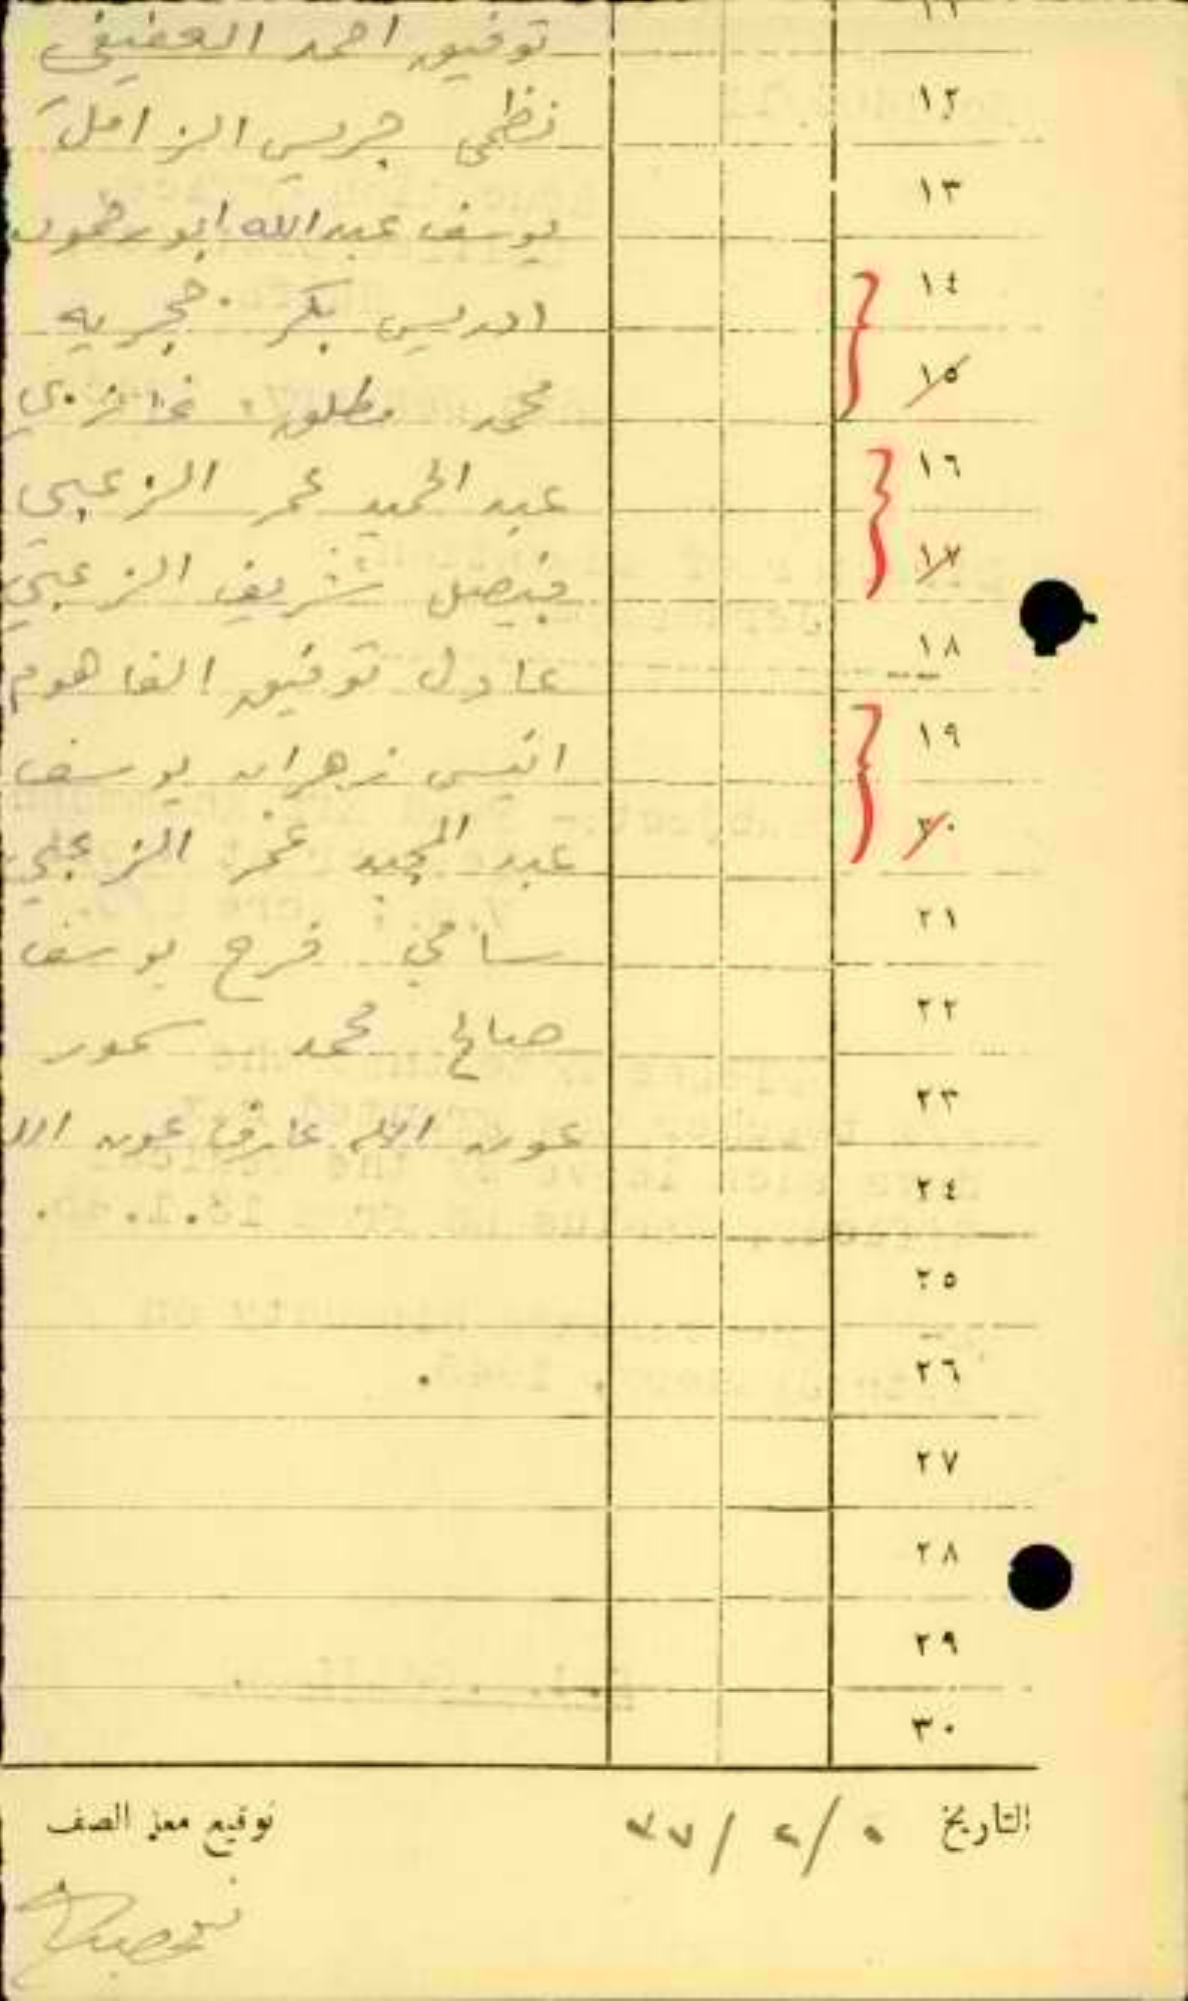 ١١ توفيق احمد العفيفي
١٢ نظمي جريس الزامل
١٣ يوسف عبدالله ابو رحمون
١٤ ادريس بكر حجريه
١٥ محمد مطلق
١٦ عبد الحميد عمر الزعبي
١٧ فيصل شريف الزعبي
١٨ عادل توفيق الفاهوم
١٩ انيس زهران يوسف
٢٠ عبد المجيد عمر الزعبي
٢١ سامي فرح يوسف
٢٢ صالح محمد سمور
٢٣ عون الله عارف عون الل
٢٤
٢٥
٢٦
٢٧
٢٨
٢٩
٣٠
التاريخ ٥/٢/٣٧ توقيع معلم الصف